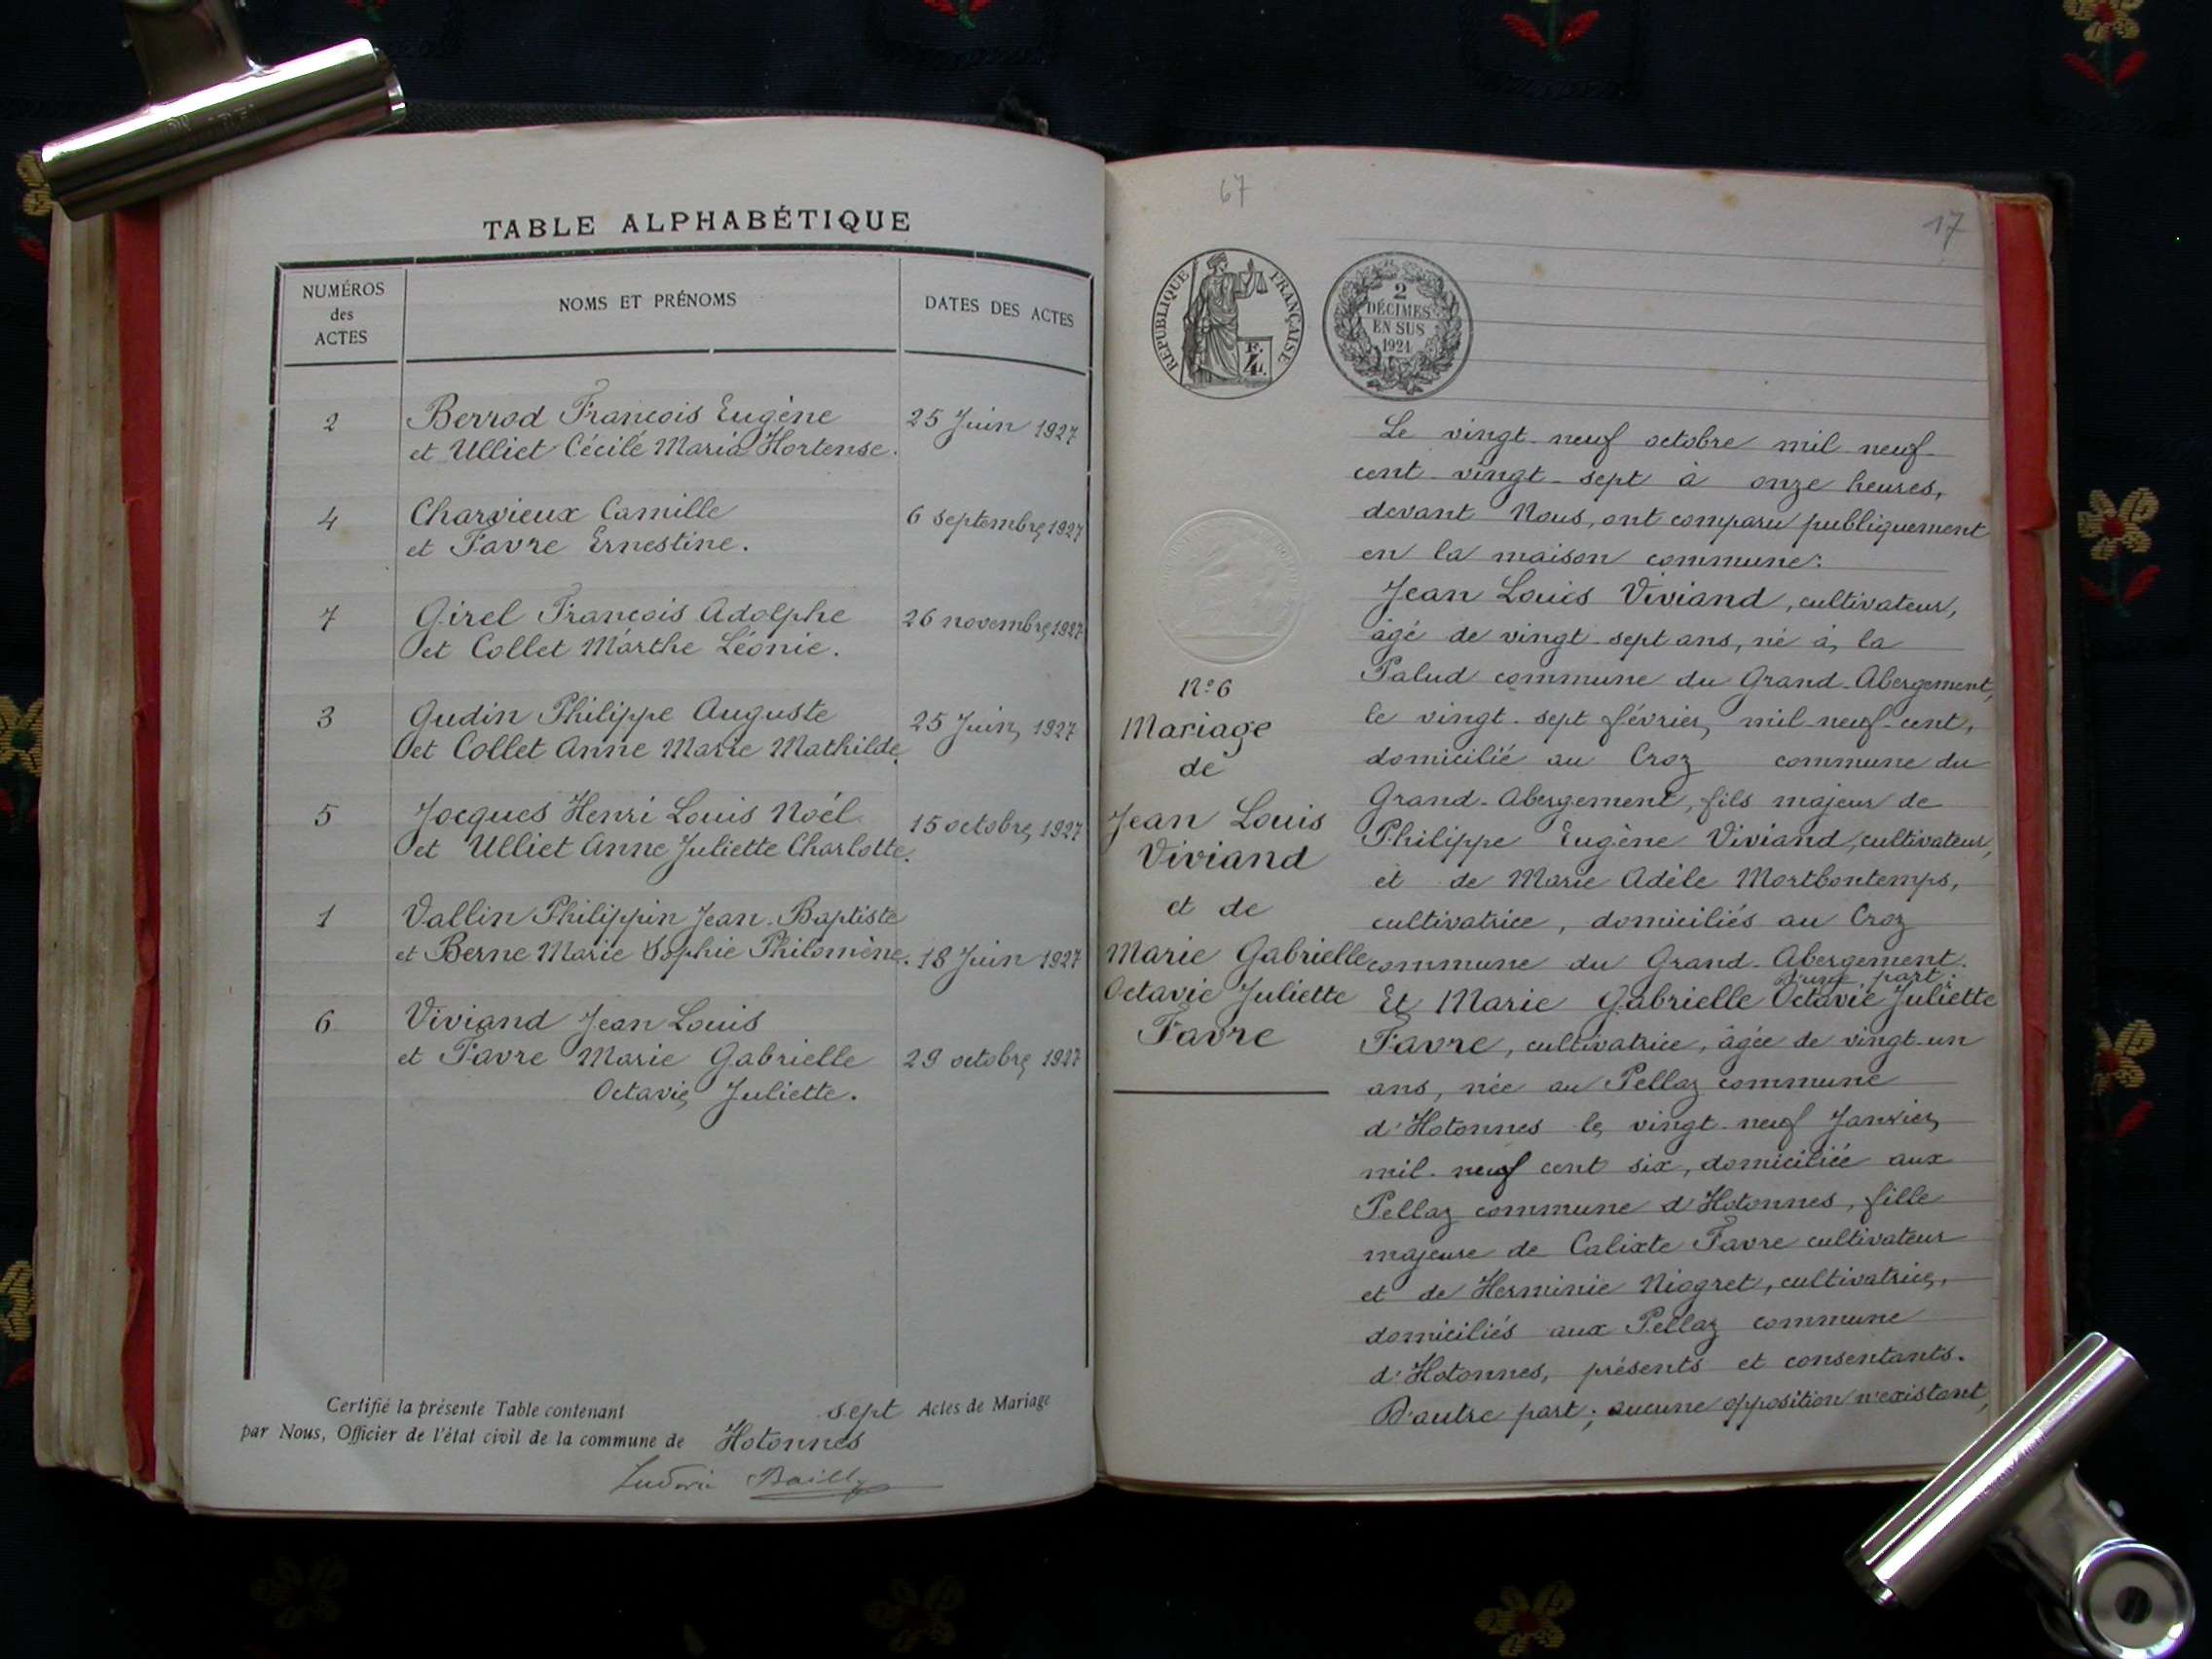 TABLE ALPHABÉTIQUE
NUMÉROS
des
ACTES
NOMS ET PRÉNOMS
DATES DES ACTES
2 Berrod François Eugène 25 Juin 1927
et Ulliet Cécile Maria Hortense.
4 Charvieux Camille 6 septembre 1927
et Favre Ernestine.
7 Girel François Adolphe 26 novembre 1927
et Collet Marthe Léonie.
3 Gudin Philippe Auguste 25 Juin 1927
et Collet Anne Marie Mathilde.
5 Jocques Henri Louis Noël 15 octobre 1927
et Ulliet Anne Juliette Charlotte.
1 Vallin Philippin Jean-Baptiste
et Berne Marie Sophie Philomène. 18 Juin 1927
6 Viviand Jean Louis
et Favre Marie Gabrielle 29 octobre 1927
Octavie Juliette.
Certifié la présente Table contenant sept Actes de Mariage
par Nous, Officier de l'état civil de la commune de Hotonnes
Ludovic Bailly
67
17
RÉPUBLIQUE FRANÇAISE
F.
4.
2
DÉCIMES
EN SUS
1921
N° 6
Mariage
de
Jean Louis
Viviand
et de
Marie Gabrielle
Octavie Juliette
Favre
Le vingt-neuf octobre mil neuf-
cent-vingt-sept à onze heures,
devant Nous, ont comparu publiquement
en la maison commune:
Jean Louis Viviand, cultivateur,
âgé de vingt-sept ans, né à la
Palud commune du Grand-Abergement,
le vingt-sept février mil neuf-cent,
domicilié au Croz commune du
Grand-Abergement, fils majeur de
Philippe Eugène Viviand, cultivateur,
et de Marie Adèle Mortbontemps,
cultivatrice, domiciliés au Croz
commune du Grand-Abergement.
d'une part;
Et Marie Gabrielle Octavie Juliette
Favre, cultivatrice, âgée de vingt-un
ans, née au Pellaz commune
d'Hotonnes le vingt-neuf Janvier
mil-neuf cent six, domiciliée aux
Pellaz commune d'Hotonnes, fille
majeure de Calixte Favre cultivateur
et de Herminie Niogret, cultivatrice,
domiciliés aux Pellaz commune
d'Hotonnes, présents et consentants.
D'autre part; aucune opposition n'existant,